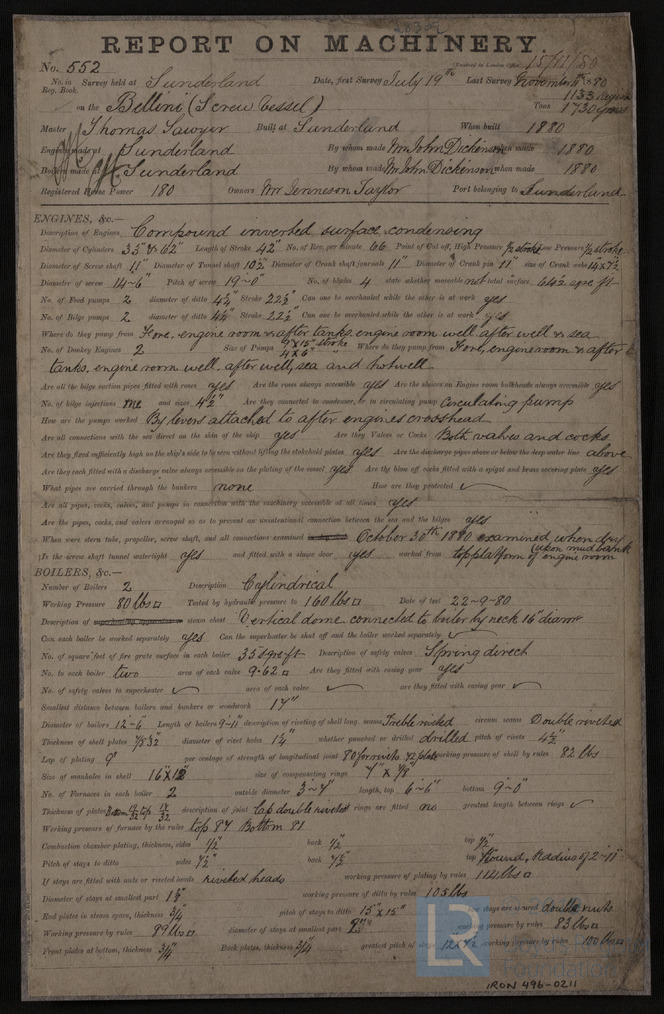 REPORT ON MACHINERY.
No. 552
(Received in London Office 15/11/80
No. in Reg. Book. Survey held at Sunderland Date, first Survey July 19th Last Survey November 1880
on the Bellini (Screw Vessel) Tons 1133 1730 gross
Master Thomas Sawyer Built at Sunderland When built 1880
Engines made at Sunderland By whom made Mr John Dickinson when made 1880
Boilers made at Sunderland By whom made Mr John Dickinson when made 1880
Registered Horse Power 180 Owners Mr Jenneson Taylor Port belonging to Sunderland
ENGINES, &c.—
Description of Engines Compound inverted surface condensing
Diameter of Cylinders 33" & 62" Length of Stroke 42" No. of Rev. per minute 66 Point of Cut off, High Pressure ½ stroke Low Pressure ½ stroke
Diameter of Screw shaft 11" Diameter of Tunnel shaft 10½ Diameter of Crank shaft journals 11" Diameter of Crank pin 11" size of Crank webs 14 x 7½
Diameter of screw 14-6" Pitch of screw 19-0" No. of blades 4 state whether moveable not total surface 64½ sqre ft
No. of Feed pumps 2 diameter of ditto 4½ Stroke 22½" Can one be overhauled while the other is at work yes
No. of Bilge pumps 2 diameter of ditto 4½ Stroke 22½" Can one be overhauled while the other is at work yes
Where do they pump from Fore, engine room & after tanks, engine room well after well & sea
No. of Donkey Engines 2 Size of Pumps 9" x 15" stroke 4 x 6" Where do they pump from Fore, engine room & after
tanks, engine room well, after well, sea and hotwell
Are all the bilge suction pipes fitted with roses yes Are the roses always accessible yes Are the sluices on Engine room bulkheads always accessible yes
No. of bilge injections one and sizes 4½" Are they connected to condenser, or to circulating pump Circulating pump
How are the pumps worked By levers attached to after engines crosshead
Are all connections with the sea direct on the skin of the ship yes Are they Valves or Cocks Both valves and cocks
Are they fixed sufficiently high on the ship's side to be seen without lifting the stokehold plates yes Are the discharge pipes above or below the deep water line above
Are they each fitted with a discharge valve always accessible on the plating of the vessel yes Are the blow off cocks fitted with a spigot and brass covering plate yes
What pipes are carried through the bunkers none How are they protected ✓
Are all pipes, cocks, valves, and pumps in connection with the machinery accessible at all times yes
Are the pipes, cocks, and valves arranged so as to prevent an unintentional connection between the sea and the bilges yes
When were stern tube, propeller, screw shaft, and all connections examined October 30th 1880 examined when dry
(upon mud bank
Is the screw shaft tunnel watertight yes and fitted with a sluice door yes worked from top platform of engine room
BOILERS, &c.—
Number of Boilers 2 Description Cylindrical
Working Pressure 80 lbs □ Tested by hydraulic pressure to 160 lbs □ Date of test 22-9-80
Description of steam chest Vertical dome connected to boiler by neck 16" diamr
Can each boiler be worked separately yes Can the superheater be shut off and the boiler worked separately ✓
No. of square feet of fire grate surface in each boiler 33 sqre ft Description of safety valves Spring direct
No. to each boiler two area of each valve 9·62 □ Are they fitted with easing gear yes
No. of safety valves to superheater ✓ area of each valve ✓ are they fitted with easing gear ✓
Smallest distance between boilers and bunkers or woodwork 17"
Diameter of boilers 12-6" Length of boilers 9-11" description of riveting of shell long. seams Treble riveted circum seams Double riveted
Thickness of shell plates diameter of rivet holes 1¼" whether punched or drilled drilled pitch of rivets 4½
Lap of plating 9" per centage of strength of longitudinal joint 80 for rivets 72 plate working pressure of shell by rules 82 lbs
Size of manholes in shell 16" x 12" size of compensating rings 7" x 7/8"
No. of Furnaces in each boiler 2 outside diameter 3-4" length, top 6-6" bottom 9-0"
Thickness of plates description of joint Lap double riveted rings are fitted no greatest length between rings ✓
Working pressure of furnace by the rules top 87 Bottom 81
Combustion chamber plating, thickness, sides ½" back ½" top ½"
Pitch of stays to ditto sides 7½" back 7½" top Round, Raddius of 2-11"
If stays are fitted with nuts or riveted heads riveted heads working pressure of plating by rules 114 lbs □
Diameter of stays at smallest part working pressure of ditto by rules 105 lbs
End plates in steam space, thickness ¾" pitch of stays to ditto 15" x 15" how stays are secured double nuts
Working pressure by rules 89 lbs □ diameter of stays at smallest part working pressure by rules 83 lbs □
Front plates at bottom, thickness ¾" Back plates, thickness ¾" greatest pitch of stays working pressure by rules 100 lbs □
LR
Foundation
IRON 496-0211